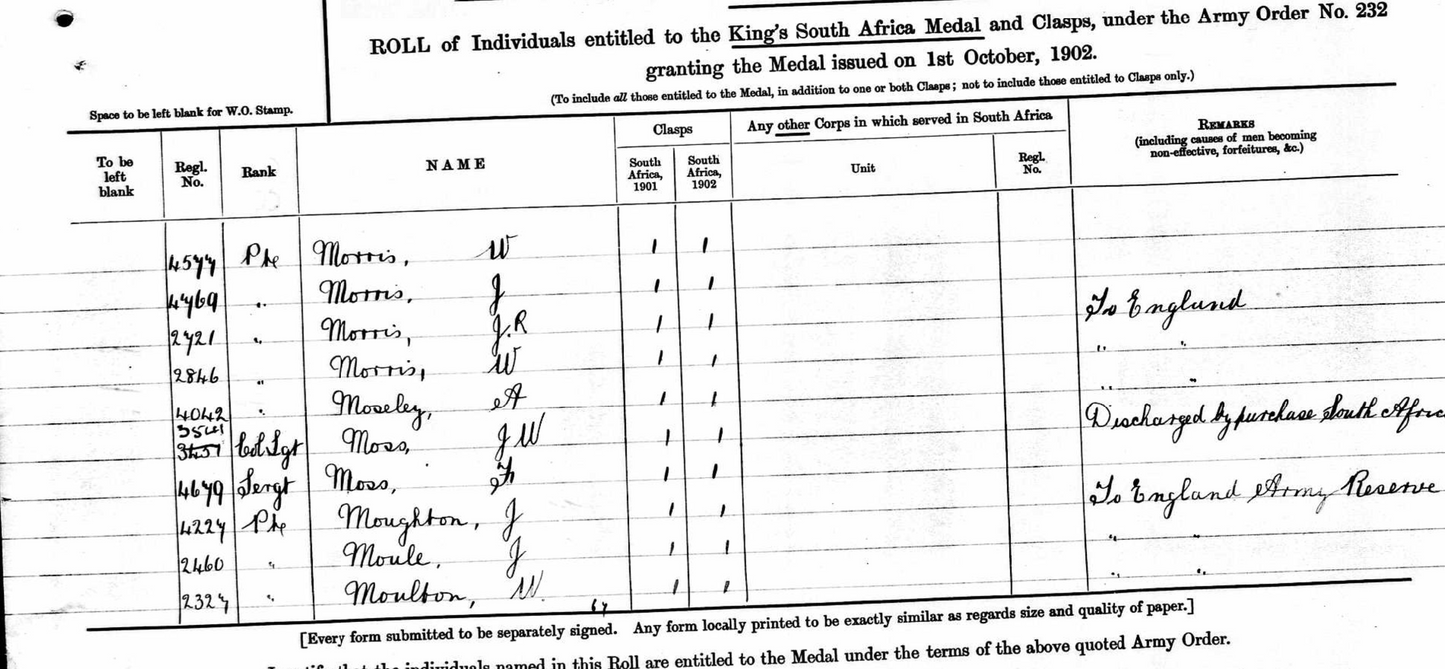 ROLL of Individuals entitled to the King's South Africa Medal and Clasps, under the Army Order No. 232
granting the Medal issued on 1st October, 1902.
(To include all those entitled to the Medal, in addition to one or both Clasps; not to include those entitled to Clasps only.)
Space to be left blank for W.O. Stamp.
To be left blank Regl. No. Rank NAME Clasps South Africa, 1901 South Africa, 1902 Any other Corps in which served in South Africa Unit Regl. No. REMARKS (including causes of men becoming non-effective, forfeitures, &c.)
4577 Pte Morris, W 1 1
4769 " Morris, J 1 1 To England
2721 " Morris, J.R 1 1 " "
2846 " Morris, W 1 1 " "
4042 " Moseley, A 1 1 Discharged by purchase South Afric
3541
3451 Col Sgt Moss, J W 1 1
4679 Sergt Moss, F 1 1 To England Army Reserve
4227 Pte Moughton, J 1 1 " "
2460 " Moule, J 1 1 " "
2327 " Moulton, W. 1 1
[Every form submitted to be separately signed. Any form locally printed to be exactly similar as regards size and quality of paper.]
that the individuals named in this Roll are entitled to the Medal under the terms of the above quoted Army Order.